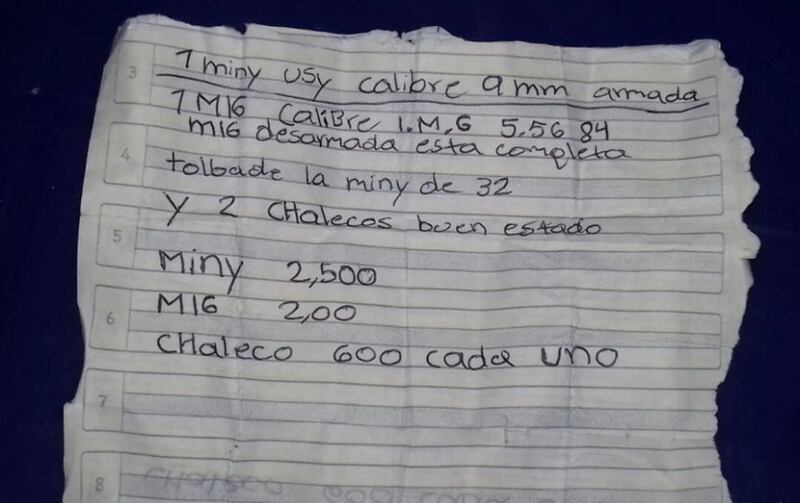 3
1 miny USy calibre 9 mm armada
1 M16 CaliBre I.M.G 5.56 84
m16 desarmada esta completa
4
tolbade la miny de 32
y 2 CHalecos buen estado
5
Miny 2,500
M16 2,00
6
CHaleco 600 cada uno
7
8